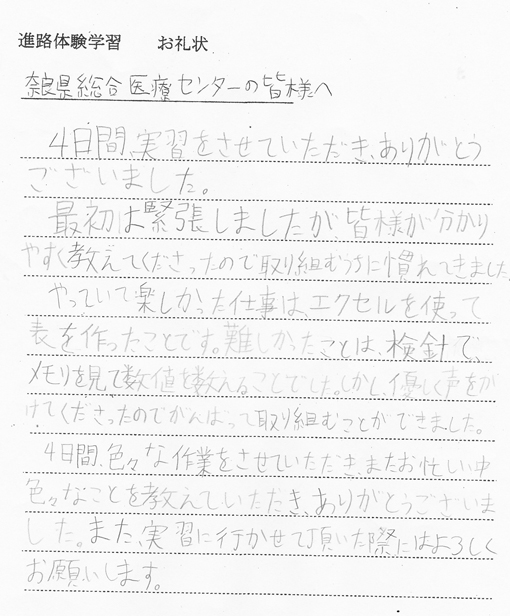 進路体験学習　　お礼状
奈良県総合医療センターの皆様へ
4日間、実習をさせていただき、ありがとう
ございました。
最初は緊張しましたが皆様が分かり
やすく教えてくださったので取り組むうちに慣れてきました。
やっていて楽しかった仕事は、エクセルを使って
表を作ったことです。難しかったことは、検針で、
メモリを見て数値を数えることでした。しかし、優しく声をが
けてくださったのでがんばって取り組むことができました。
4日間、色々な作業をさせていただき、またお忙しい中
色々なことを教えていただき、ありがとうございま
した。また、実習に行かせて頂いた際にはよろしく
お願いします。